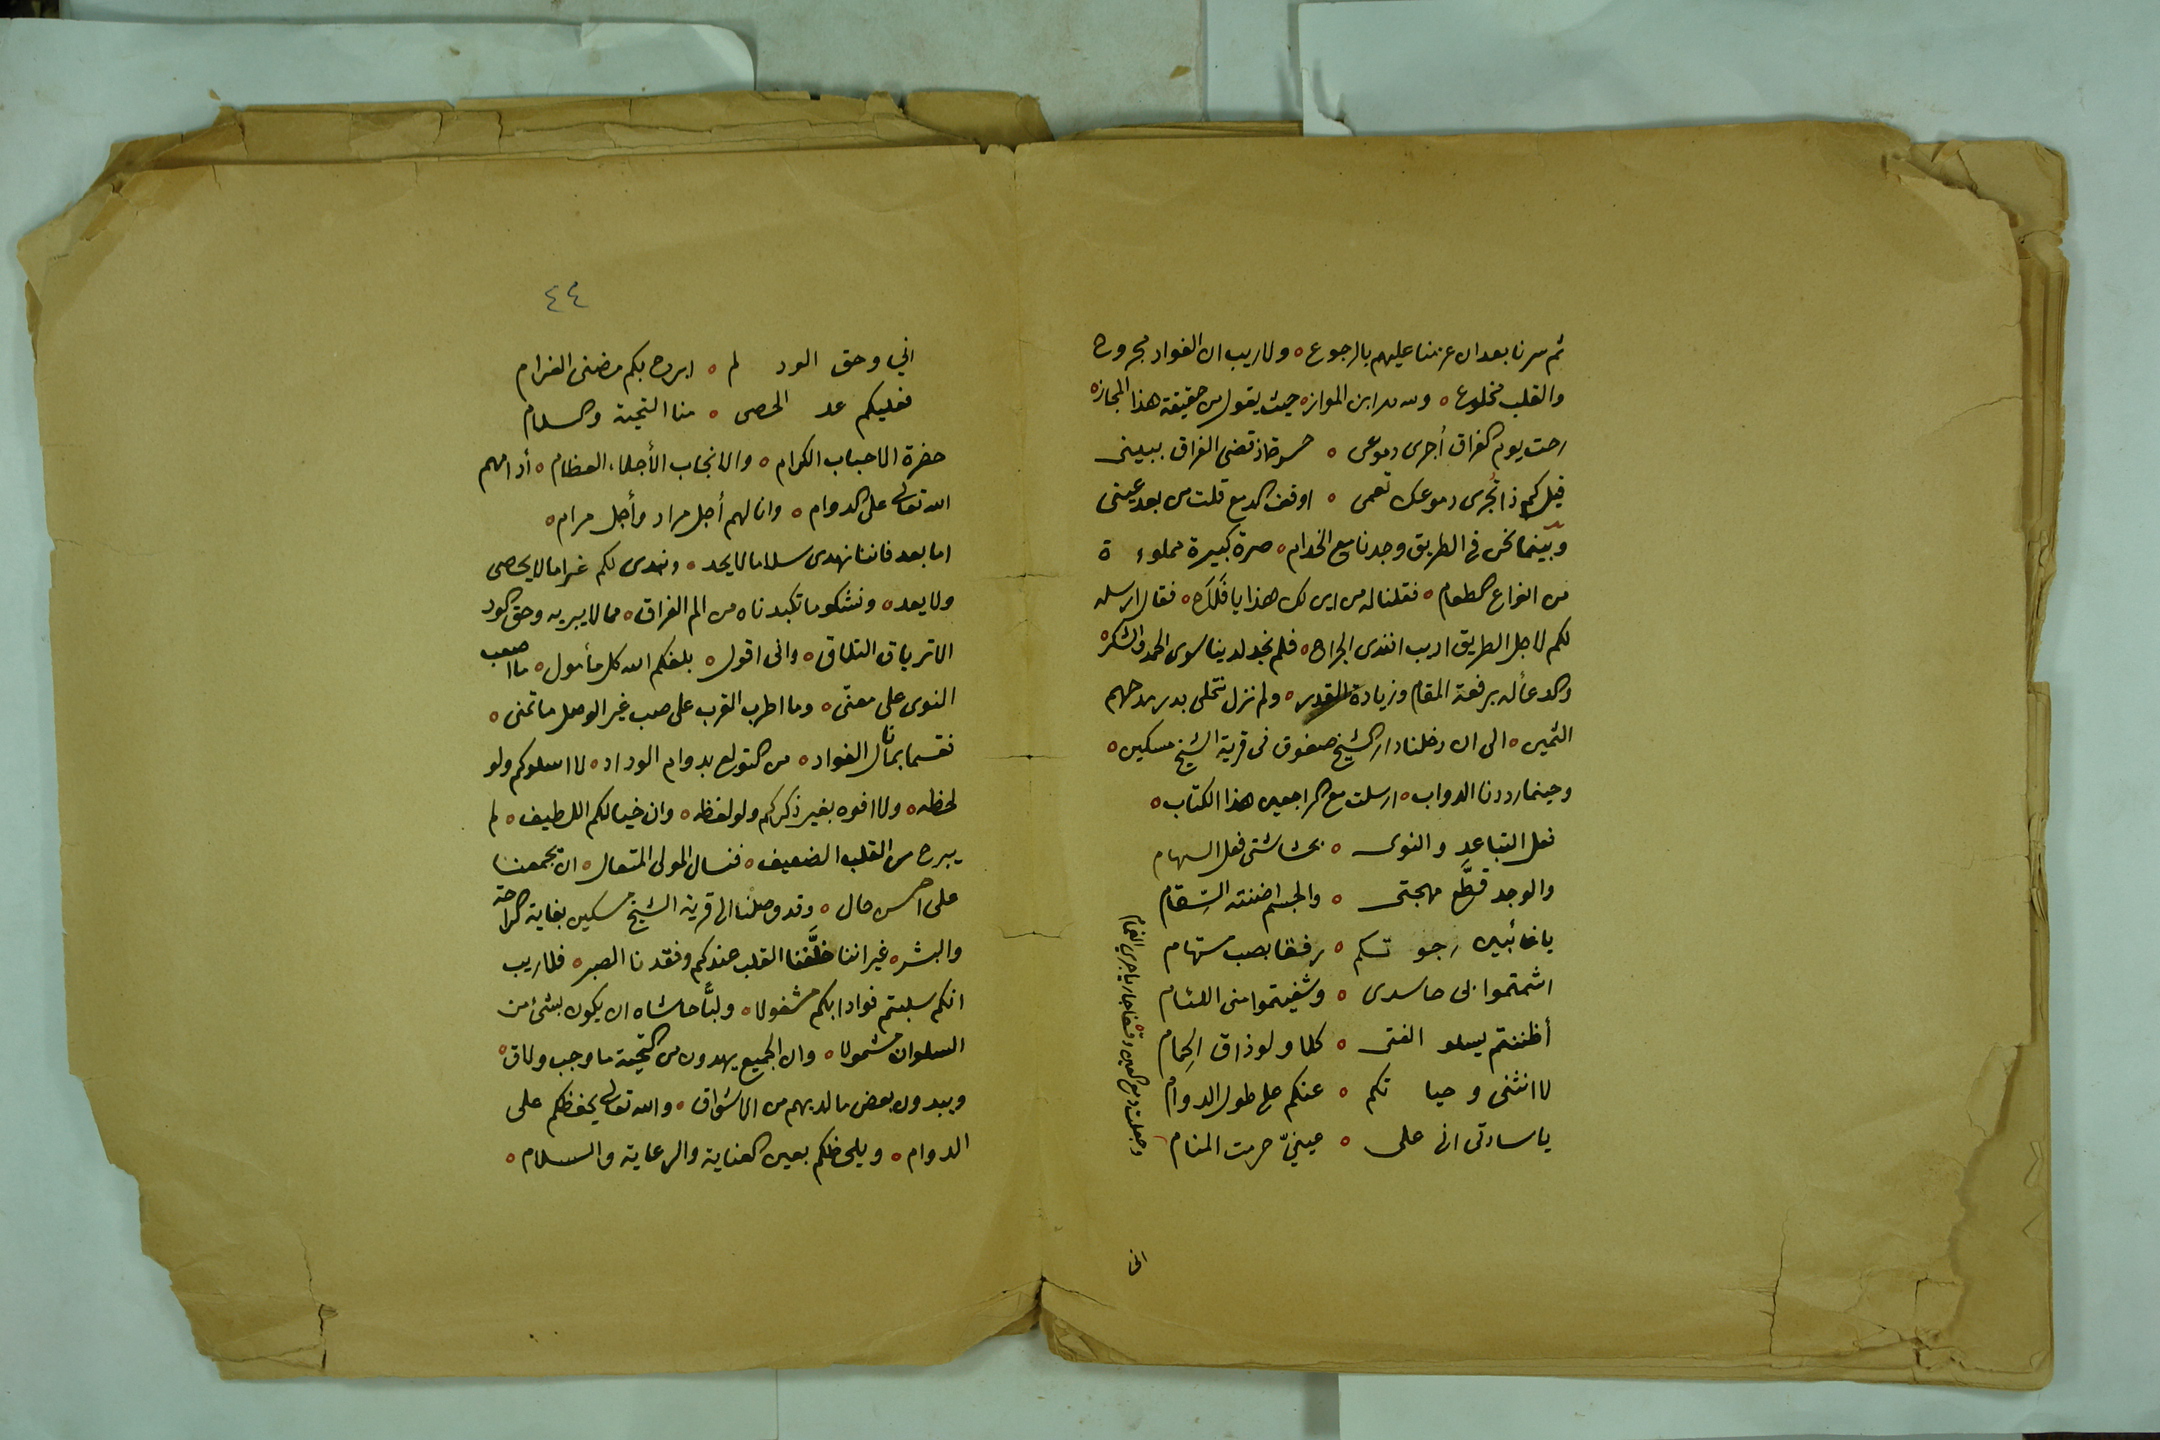 ثم سرنا بعد ان عزمنا عليهم بالرجوع ٥ ولا ريب ان الفواد مجروح
والقلب مخلوع ٥ ولله در ابن المواز ٥ حيث يقول من حقيقة هذا المجاز ٥
رحت يوم الفراق أجرى دموعى ٥ حسرة اذ قضى الفراق ببينى
قيل كم ذا تجرى دموعك تعمى ٥ اوقف الدمع قلت من بعد عينى
وبينما نحن فى الطريق وجدنا مع الخدام ٥ صرة كبيرة مملوءة
من انواع الطعام ٥ فقلنا له من اين لك هذا يا فلان ٥ فقال ارسله
لكم لاجل الطريق اديب افندى الجراح ٥ فلم نجد لدينا سوى الحمد والشكر ٥
والدعأ له برفعة المقام وزيادة القدر ٥ ولم نزل نتحلى بدر مدحهم
الثمين ٥ الى ان دخلنا دار الشيخ صفوق فى قرية الشيخ مسكين ٥
وحينما رددنا الدواب ٥ ارسلت مع الراجعين هذا الكتاب ٥
فعل التباعد والنوى ٥ بحشاشتى فعل السهام
والوجد قطَّع مهجتى ٥ والجسم اضنته السِقام
يا غائبين رجوتكم ٥ رفقا بصب مستهام
اشمتموا بى حاسدى ٥ وشفيتموا منى اللئام
أظننتم يسلو الفتى ٥ كلا ولو ذاق الحِمام
لا انثنى وحياتكم ٥ عنكم على طول الدوام
يا سادتى انى على ٥ عينيّ حرمت المنام
وجعلت دمع العين وقفا جاريا جرى الغمام
انى
٤٤
اني وحق الود لم ٥ ابرح بكم مضنى الغرام
فعليكم عد الحصى ٥ منا التحية والسلام
حضرة الاحباب الكرام ٥ والانجاب الأجلاء العظام ٥ أدامهم
الله تعالى على الدوام ٥ وانالهم أجل مراد وأجل مرام ٥
اما بعد فاننا نهدى سلاما لا يحد ٥ ونبدى لكم غراما لا يحصى
ولا يعد ٥ ونشكو ما تكبدناه من الم الفراق ٥ مما لا يبريه وحق الود
الا ترياق التلاق ٥ وانى اقول ٥ بلغكم الله كل مأمول ٥ ما اصعب
النوى على معنّى ٥ وما اطرب القرب على صب غير الوصل ما تمنى ٥
نقسما بما نال الفواد ٥ من التولع بدوام الوداد ٥ لا اسلوكم ولو
لحظه ٥ ولا افوه بغير ذكركم ولو لفظه ٥ وان خيالكم اللطيف ٥ لم
يبرح من القلب الضعيف ٥ فنسال المولى المتعال ٥ ان يجمعنا
على احسن حال ٥ وقد وصلنا الى قرية الشيخ مسكين بغاية الراحة
والبشر ٥ غير اننا خلَّفنا القلب عندكم وفقدنا الصبر ٥ فلا ريب
انكم سلبتم فوادا بكم مشغولا ٥ ولبًّا حاشاه ان يكون بشئ من
السلوان مشمولا ٥ وان الجميع يهدون من التحية ما وجب ولاق ٥
ويبدون بعض ما لديهم من الاشواق ٥ والله تعالى يحفظكم على
الدوام ٥ ويلحظكم بعين العناية والرعاية والسلام ٥